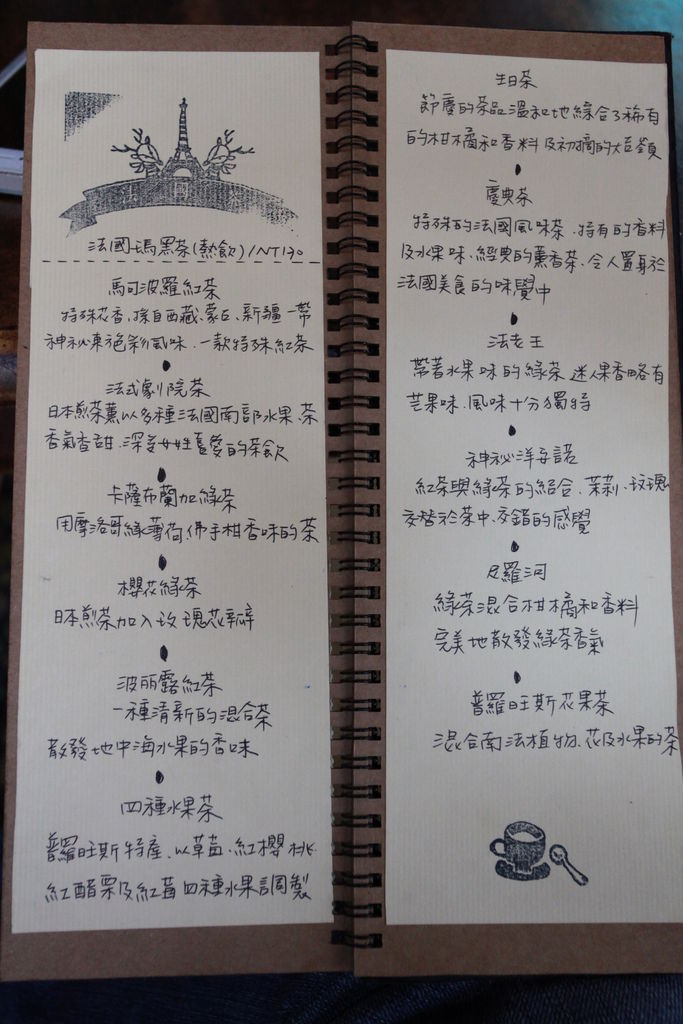 法國瑪黑茶(熱飲)/NT130
馬可波羅紅茶
特殊花香,採自西藏、蒙古、新疆一帶
神秘東色彩風味.一款特殊紅茶
法式劇院茶
日本煎茶薰以多種法國南部水果茶
香氣香甜.深受女性喜愛的茶飲
卡薩布蘭加綠茶
用摩洛哥綠薄荷.佛手柑香味的茶
櫻花綠茶
日本煎茶加入玫瑰花瓣
波麗露紅茶
一種清新的混合茶
散發地中海水果的香味
四種水果茶
普羅旺斯特產.以草莓.紅櫻桃.
紅醋栗及紅莓四種水果調製
生日茶
節慶的茶品溫和地綜合了稀有
的柑橘和香料及初摘的大吉嶺
慶典茶
特殊的法國風味茶.特有的香料
及水果味.經典的薰香茶.令人置身於
法國美食的味覺中
法老王
帶著水果味的綠茶.迷人果香略有
芒果味.風味十分獨特
神秘洋子諾
紅茶與綠茶的結合.茉莉.玫瑰
交替於茶中.交錯的感覺
尼羅河
綠茶混合柑橘和香料
完美地散發綠茶香氣
普羅旺斯花果茶
混合南法植物.花及水果的茶